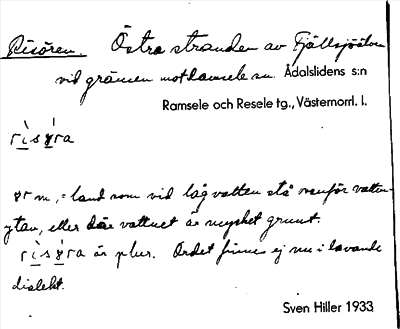 Risören. Östra stranden av Fjällsjöälven
vid gränsen mot Ramsele sn. Ådalslidens s:n
Ramsele och Resele tg., Västernorrl. l.
rìsø̀ra
ør m, = land som vid låg vatten stå ovanför vatten-
ytan, eller där vattnet är mycket grunt.
rìsø̀ra är plur. Ordet finnes ej nu i levande
dialekt.
Sven Hiller 1933